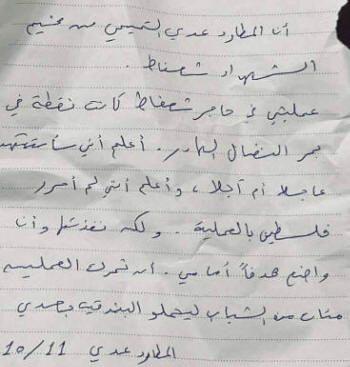 أنا المطارد عدي التميمي من مخيم
الشهداء شعفاط .
عمليتي في حاجز شعفاط كانت نقطة في
بحر النضال الهادر . أعلم أني سأستشهد
عاجلا أم آجلا ، وأعلم أنني لم أحرر
فلسطين بالعملية .. ولكن نفذتها وأنا
واضع هدفاً أمامي . أن تحرك العملية
مئات من الشباب ليحملو البندقية بعدي
المطارد عدي 10/11